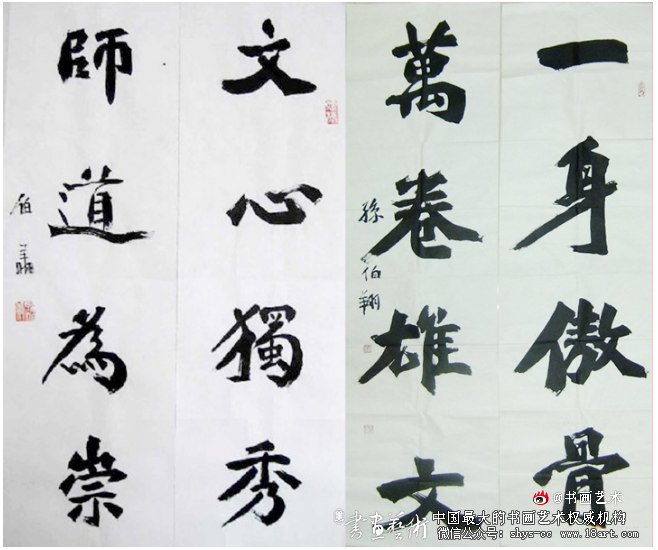 一身傲骨
萬卷雄文
孫伯翔
文心獨秀
師道為崇
伯翔
@书画艺术
書畫藝術
中国最大的书画艺术权威机构
微信公众号：shys-cc 上 www.18art.com